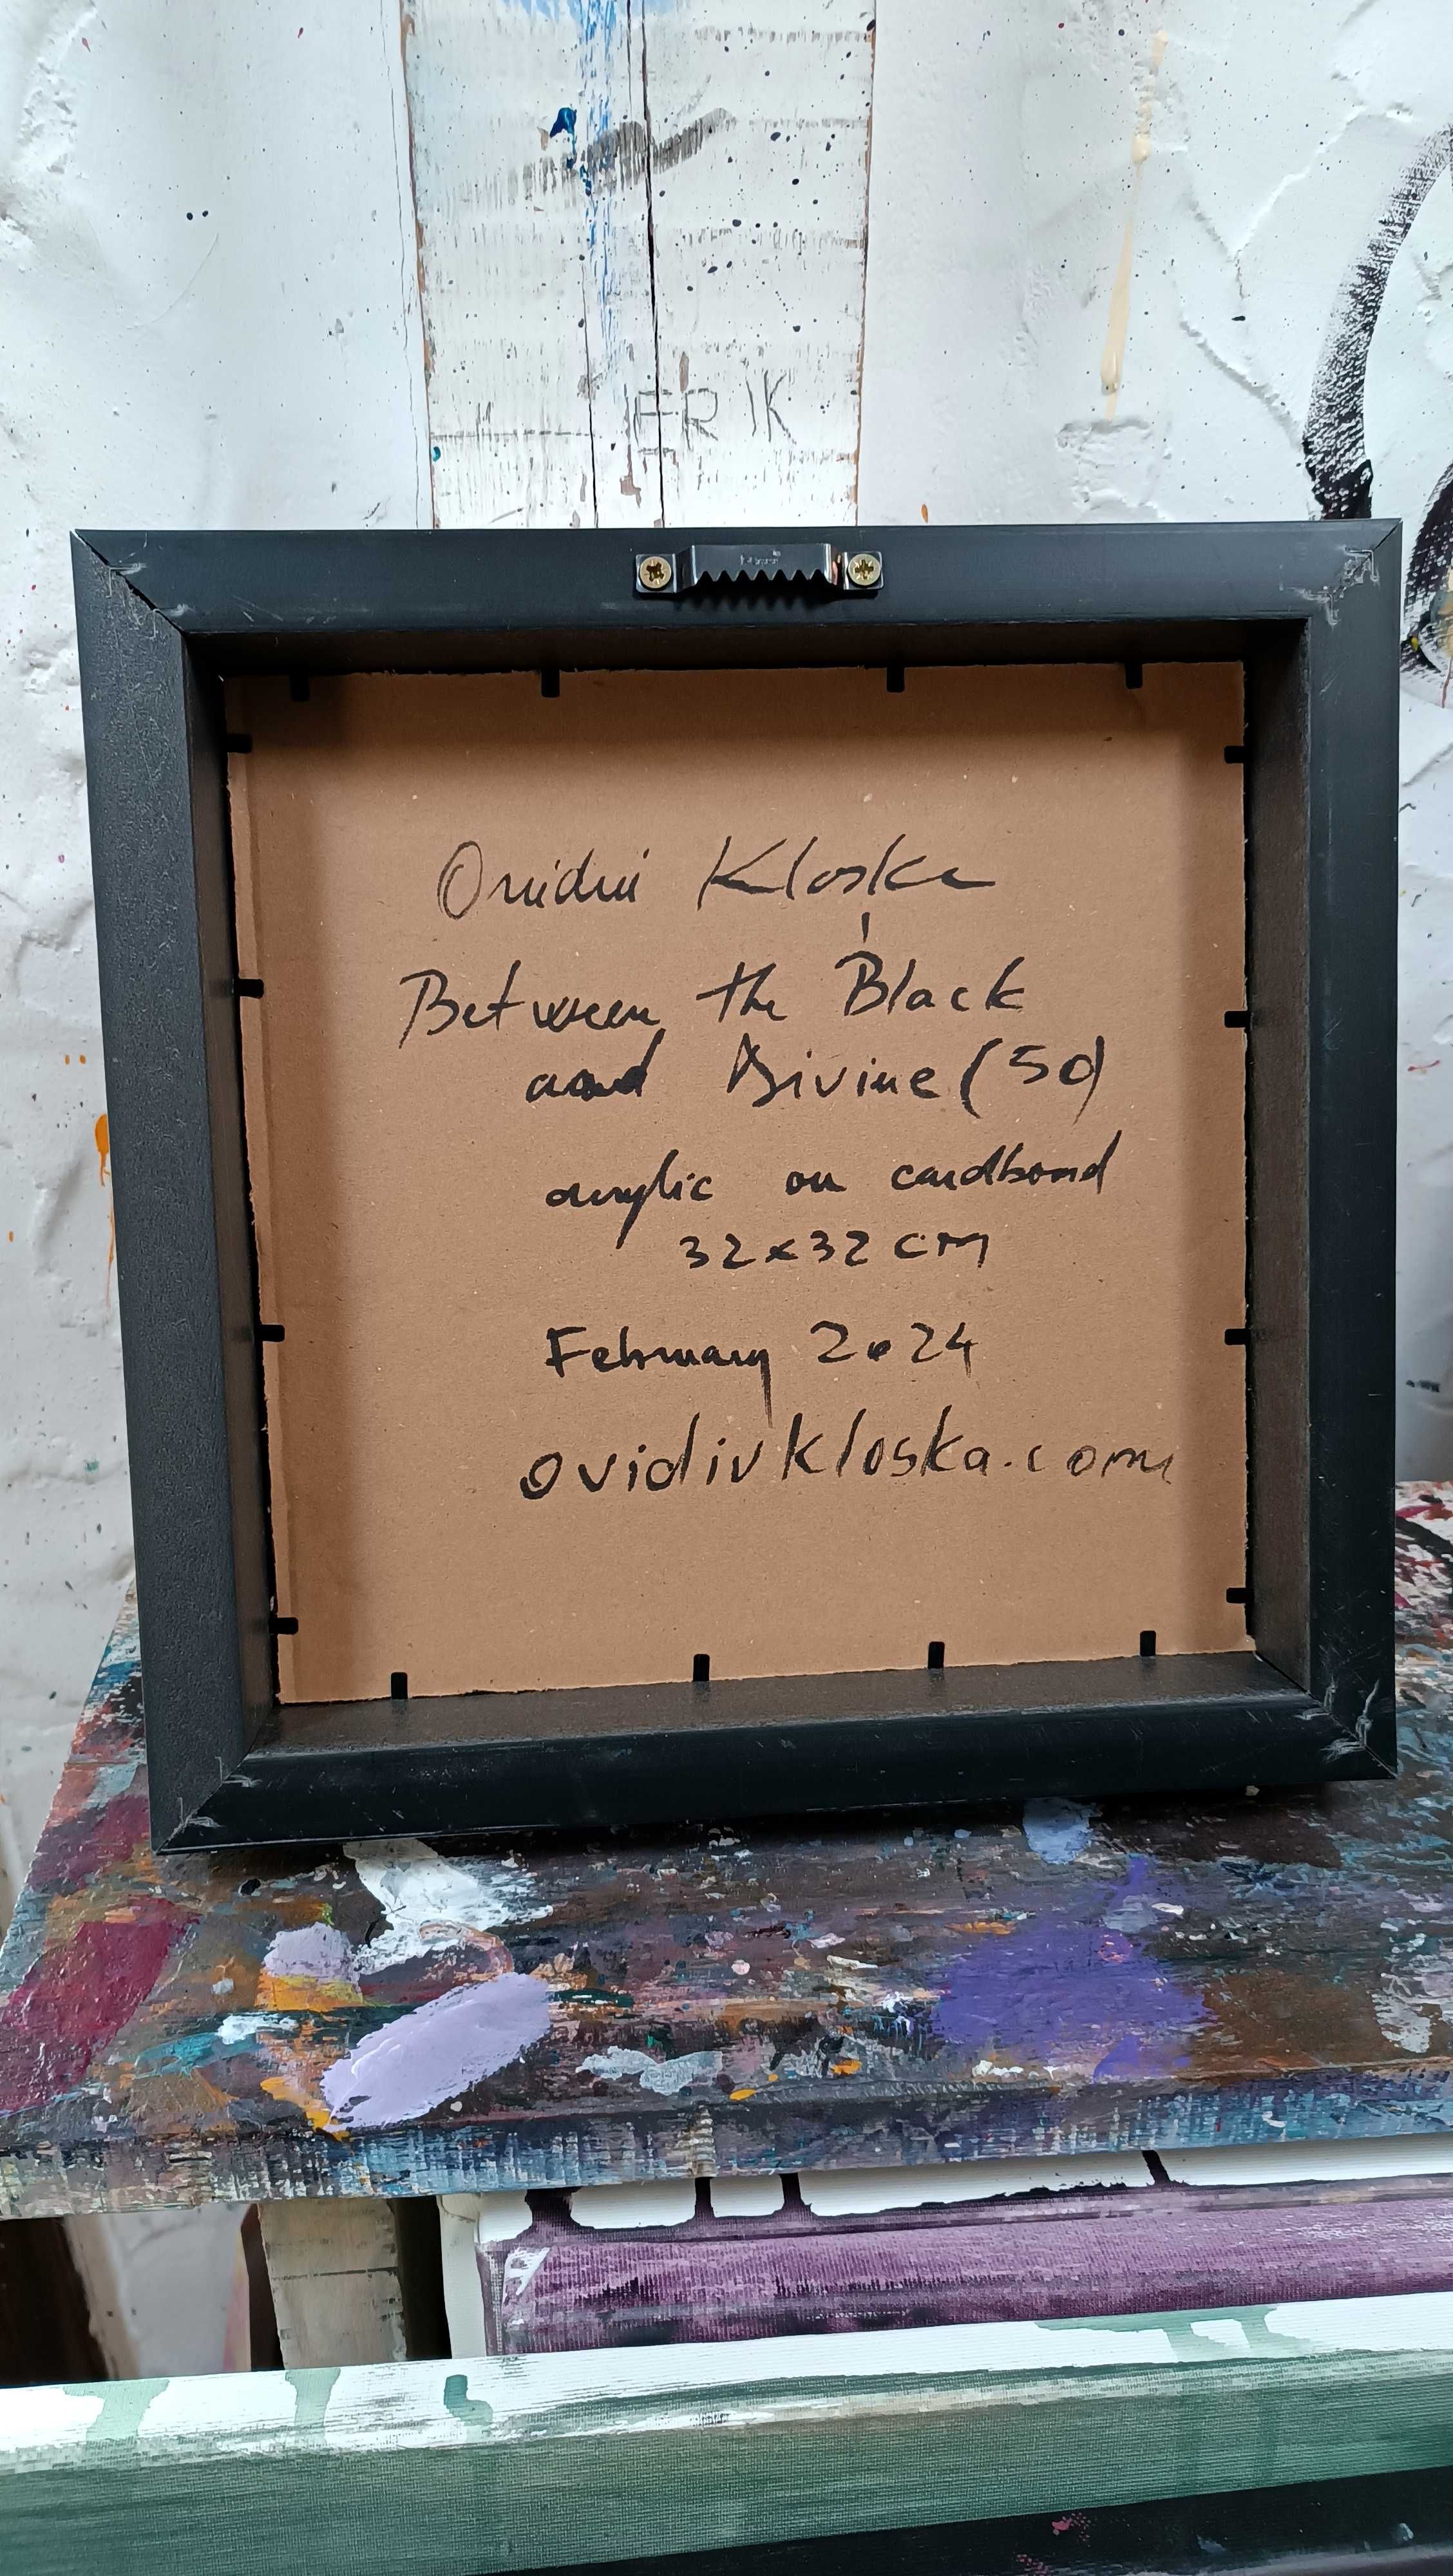 ERIK
Ovidiu Kloska
Between the Black
and Divine (50)
acrylic on cardboard
32x32 cm
February 2024
ovidiukloska.com